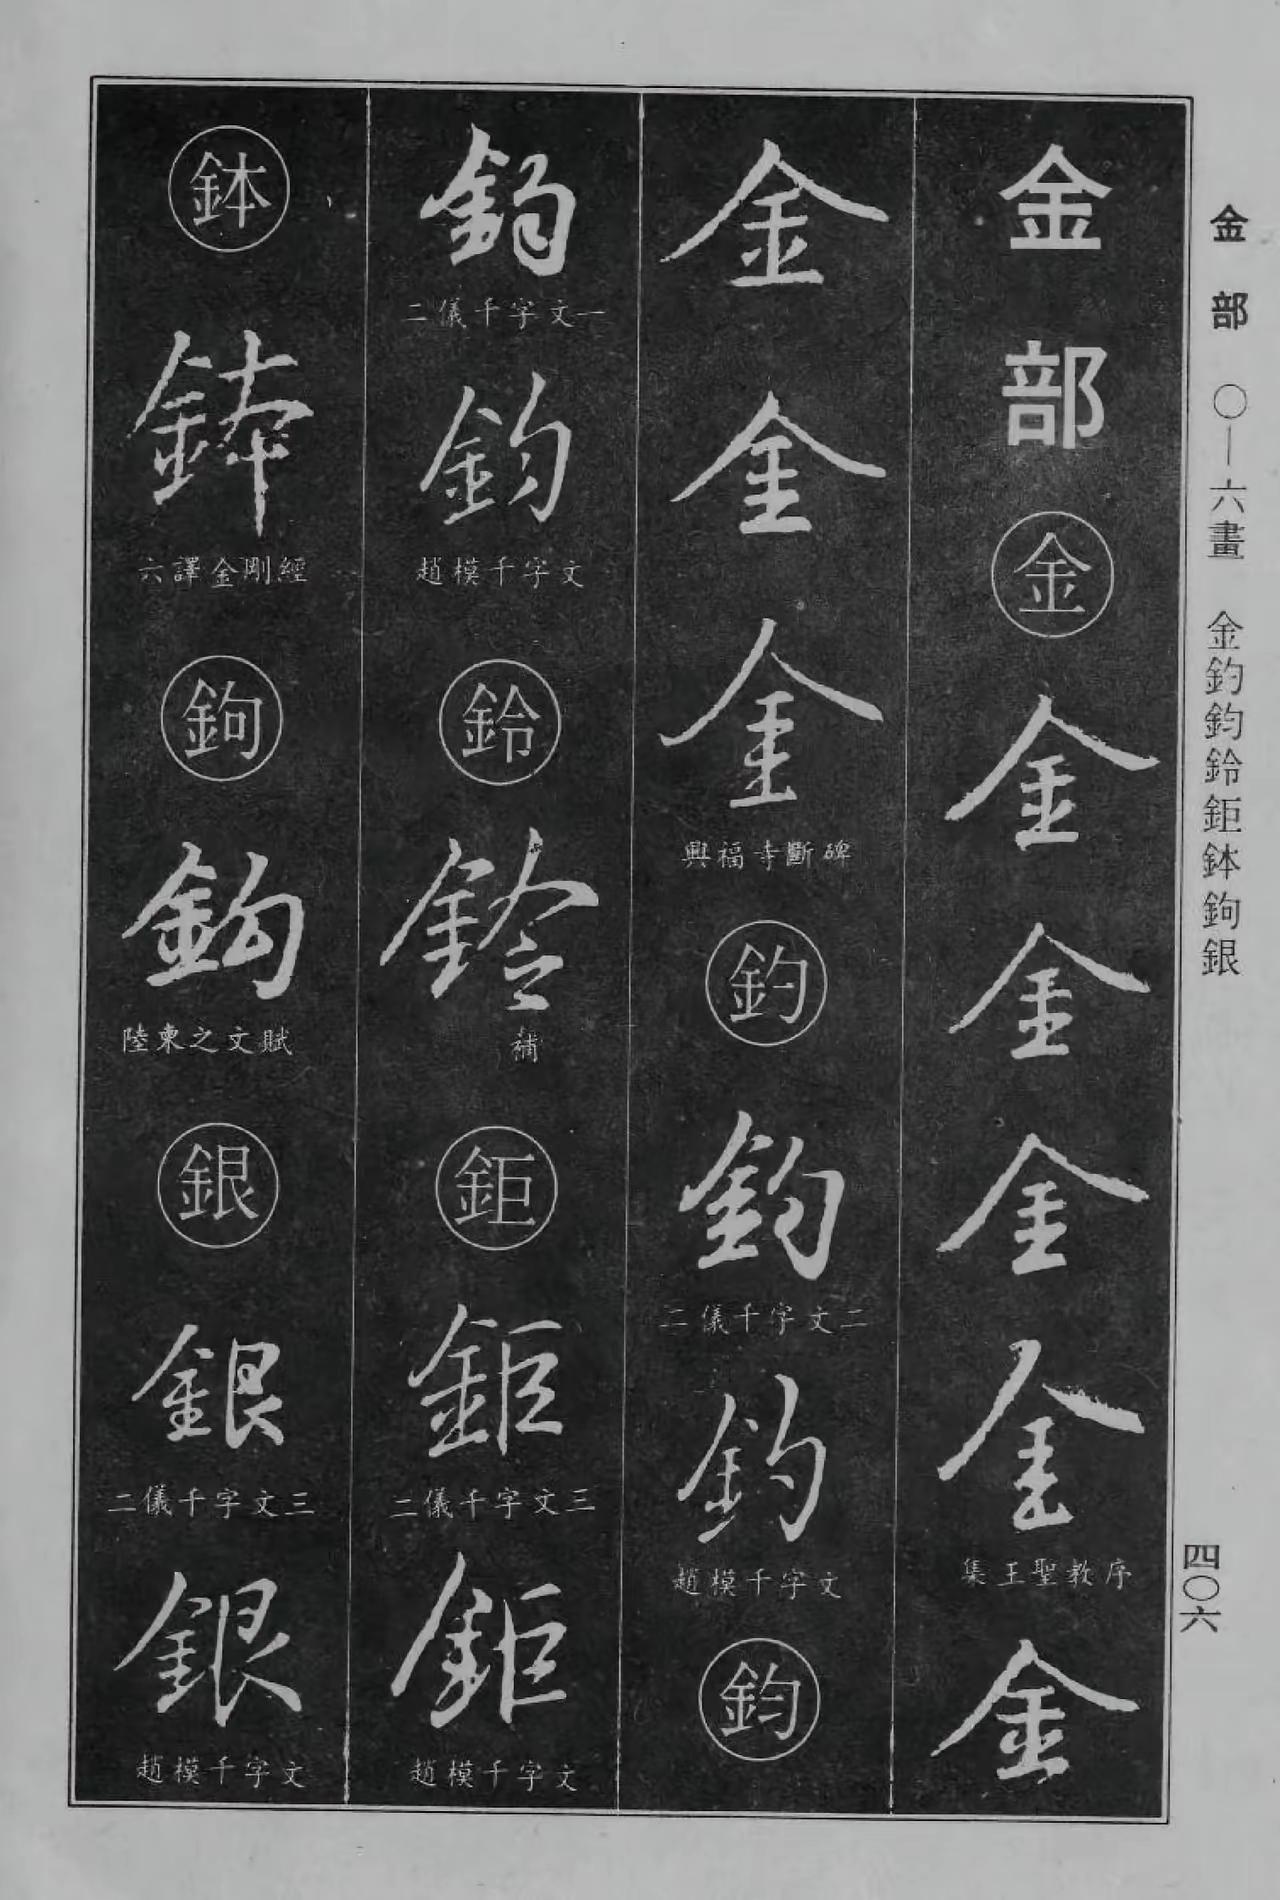 金部 〇—六畫 金釣鈞鈴鉅鉢鉤銀
四〇六
金部
金
金
金
金
金
集王聖教序
金
金
金
金
興福寺斷碑
釣
釣
二儀千字文二
釣
趙模千字文
鈞
鈞
二儀千字文一
鈞
趙模千字文
鈴
鈴
補
鉅
鉅
二儀千字文三
鉅
趙模千字文
鉢
鉢
六譯金剛經
鉤
鉤
陸柬之文賦
銀
銀
二儀千字文三
銀
趙模千字文